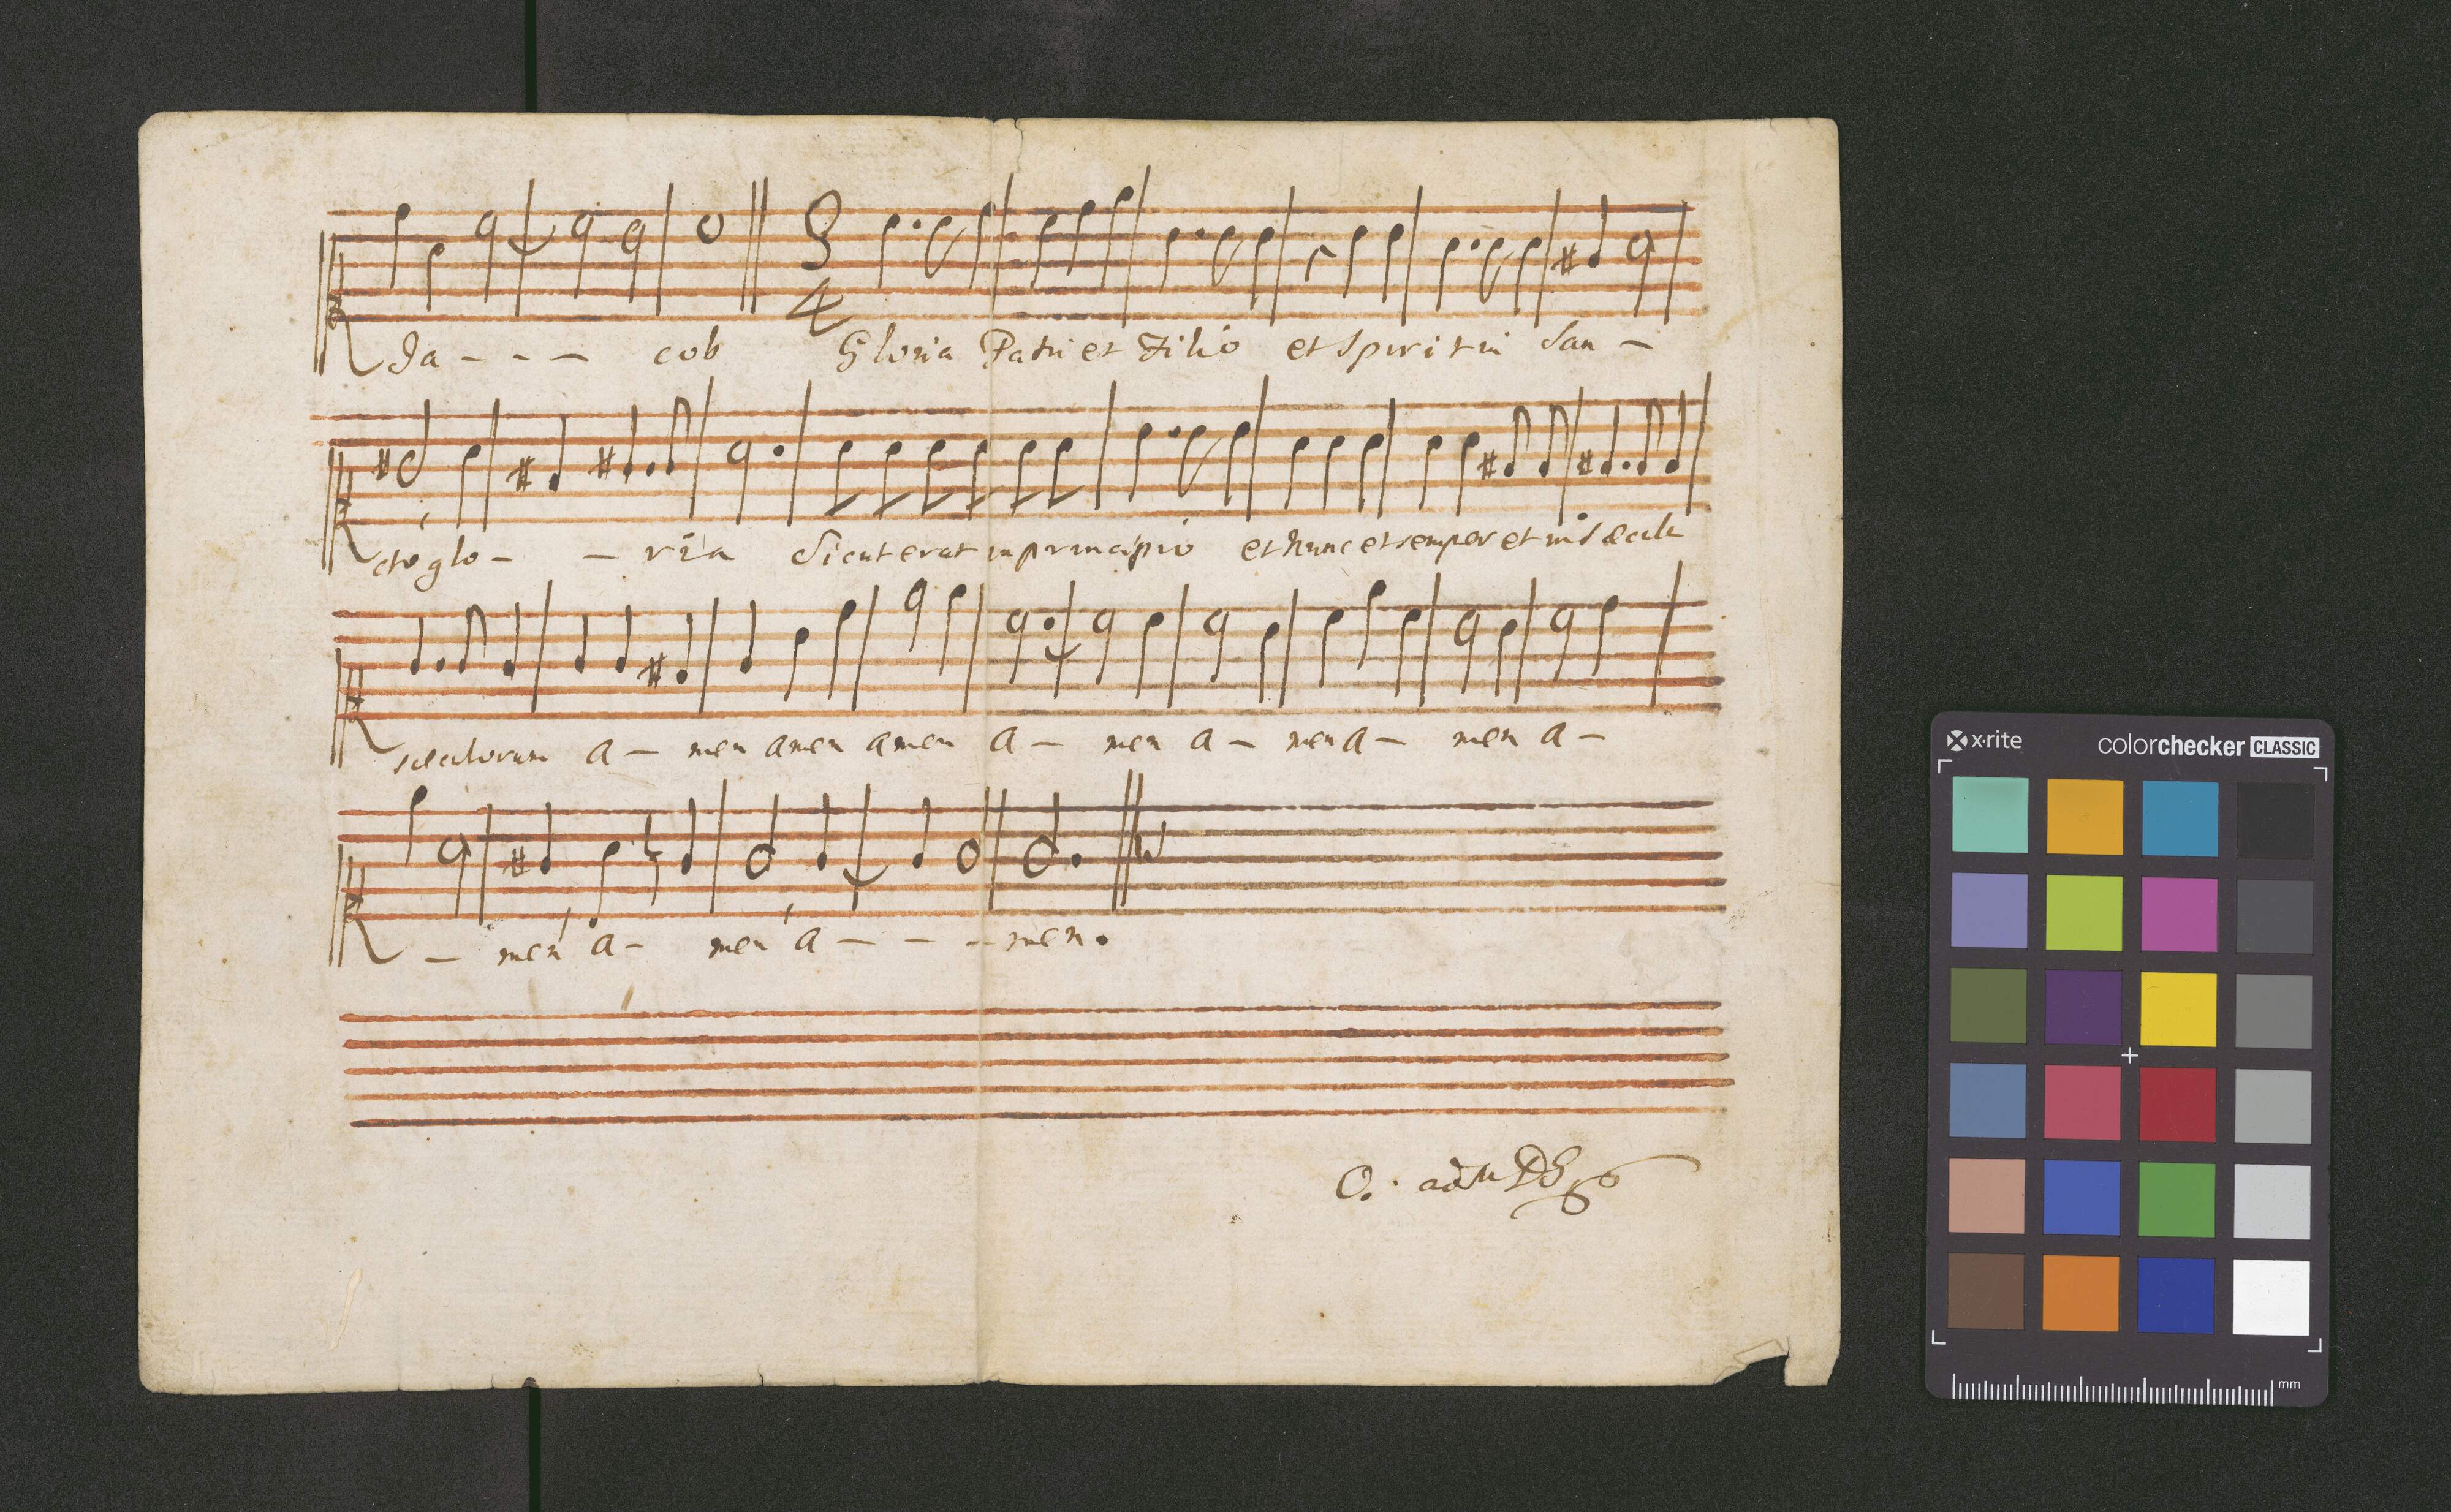 Ja - - - cob Gloria Patri et Filio et Spiritui San -
cto glo - - ria Sicut erat in principio et nunc et semper et in sæcula
sæculorum a - men amen amen a - men a - men a - men a -
- men a - men a - - - men.
O.
x·rite colorchecker CLASSIC
mm